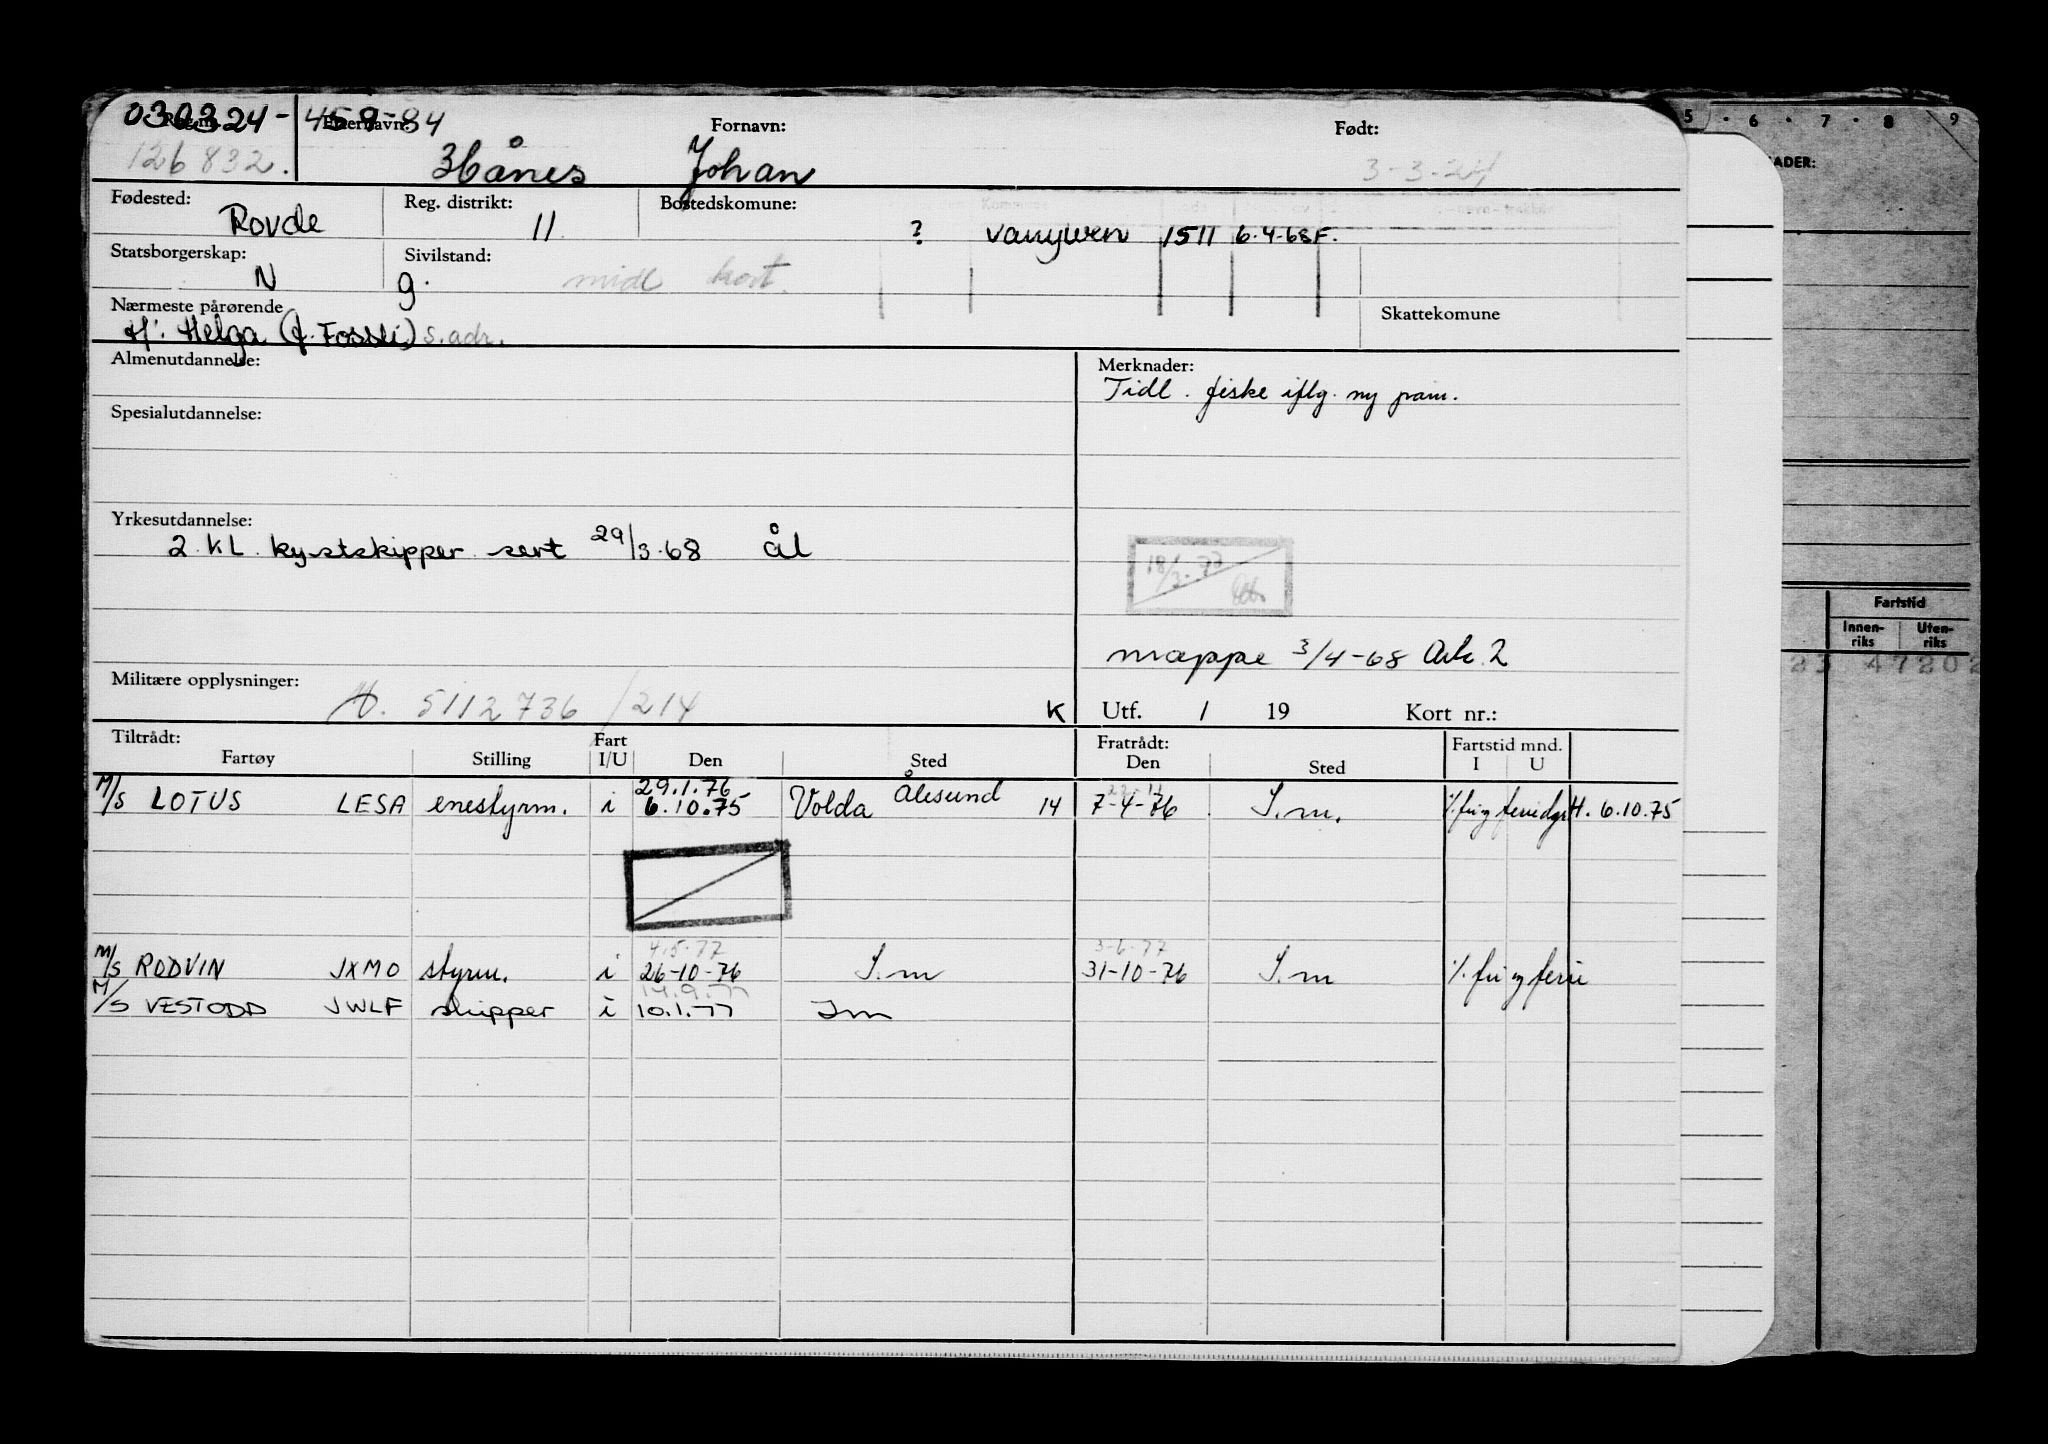 030324-
Reg.nr.
Etternavn:
Fornavn:
Født:
126832.
Hånes
Johan
3-3-24
Fødested:
Rovde
Reg. distrikt:
11
Bostedskomune:
? Vanylven 1511 6.4.68 F.
Statsborgerskap:
N
Sivilstand:
g.
midl kort.
Nærmeste pårørende
H: Helga (f. Fossli) s. adr.
Skattekomune
Almenutdannelse:
Merknader:
Tidl. fiske iflg. ny pam.
Spesialutdannelse:
Yrkesutdannelse:
2. kl. kystskipper sert 29/3-68 ål
mappe 3/4-68
Militære opplysninger:
5112736/214
K
Utf. / 19 Kort nr.:
Tiltrådt:
Fartøy
Stilling
Fart
I/U
Den
Sted
Fratrådt:
Den
Sted
Fartstid mnd.
I U
29.1.76 Ålesund
M/S LOTUS LESA enestyrm. i 6.10.75 Volda 14 7-4-76 S.m. H. 6.10.75
4.5.77 3-6-77
M/S RODVIN JXMO styrm. i 26-10-76 S.m 31-10-76 S.m %. fri og ferie
14.9.77
M/S VESTODD JWLF skipper i 10.1.77 Sm
5 · 6 · 7 · 8 9
ADER:
Fartstid
Innen-
riks
Uten-
riks
23 47202